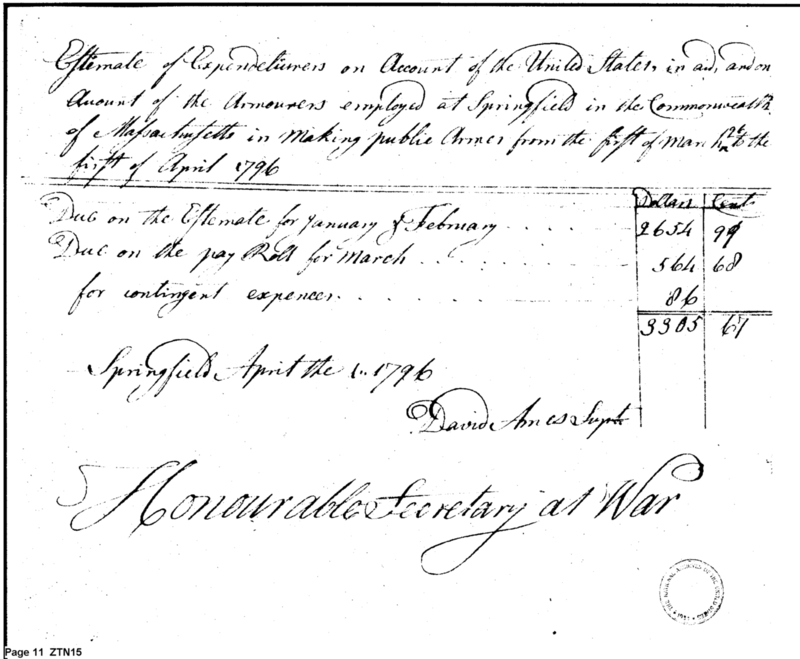 Estemate of Expenditurers on Account of the United States, in aid, and on
Acount of the Armourers employed at Springfield in the Commonwealth
of Massachusetts in making public Armes from the first of March to the
first of April 1796
Dollars Cents
Due on the Estemate for January & February 2654 99
Due on the pay Roll for March 564 68
for contingent expences 86
3305 67
Springfield April the 1. 1796
David Ames Supt
Honourable Secretary at War
THE NATIONAL ARCHIVES OF THE UNITED STATES
Page 11 ZTN15